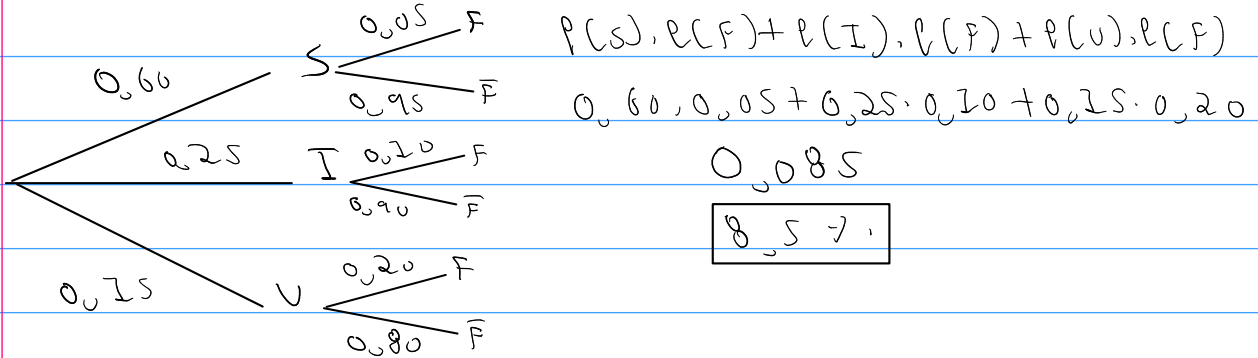 0,05 F
0,60 S
0,95 F̅
0,25 I 0,10 F
0,90 F̅
0,15 V 0,20 F
0,80 F̅
P(S).P(F)+P(I).P(F)+P(V).P(F)
0,60.0,05+0,25.0,10+0,15.0,20
0,085
8,5%